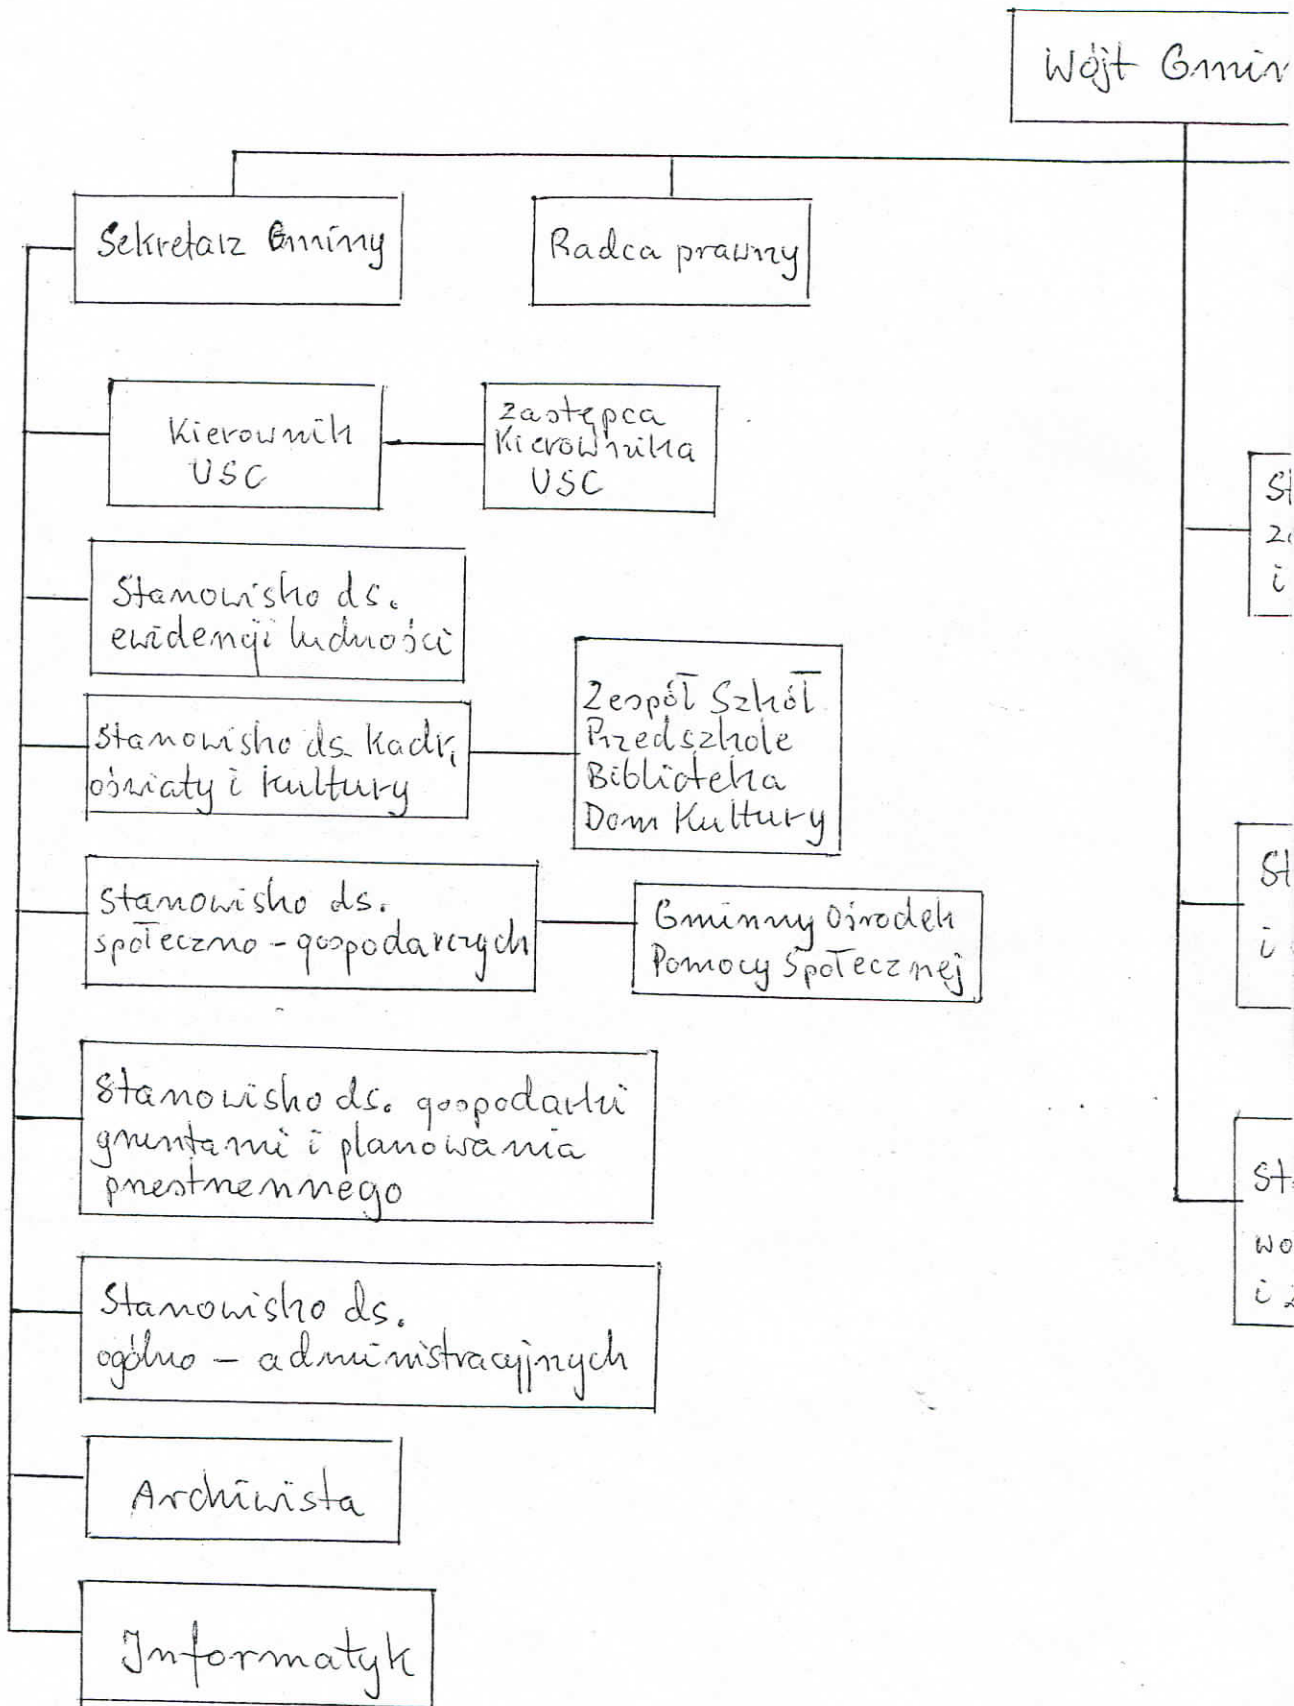 Wójt
Sekretarz Gminy
Radca prawny
Kierownik
USC
Zastępca
Kierownika
USC
Stanowisko ds.
ewidencji ludności
Stanowisko ds. Kadr,
oświaty i Kultury
Zespół Szkół
Przedszkole
Biblioteka
Dom Kultury
Stanowisko ds.
społeczno - gospodarczych
Gminny Ośrodek
Pomocy Społecznej
Stanowisko ds. gospodarki
gruntami i planowania
przestrzennego
Stanowisko ds.
ogólno - administracyjnych
Archiwista
Informatyk
i
i
i